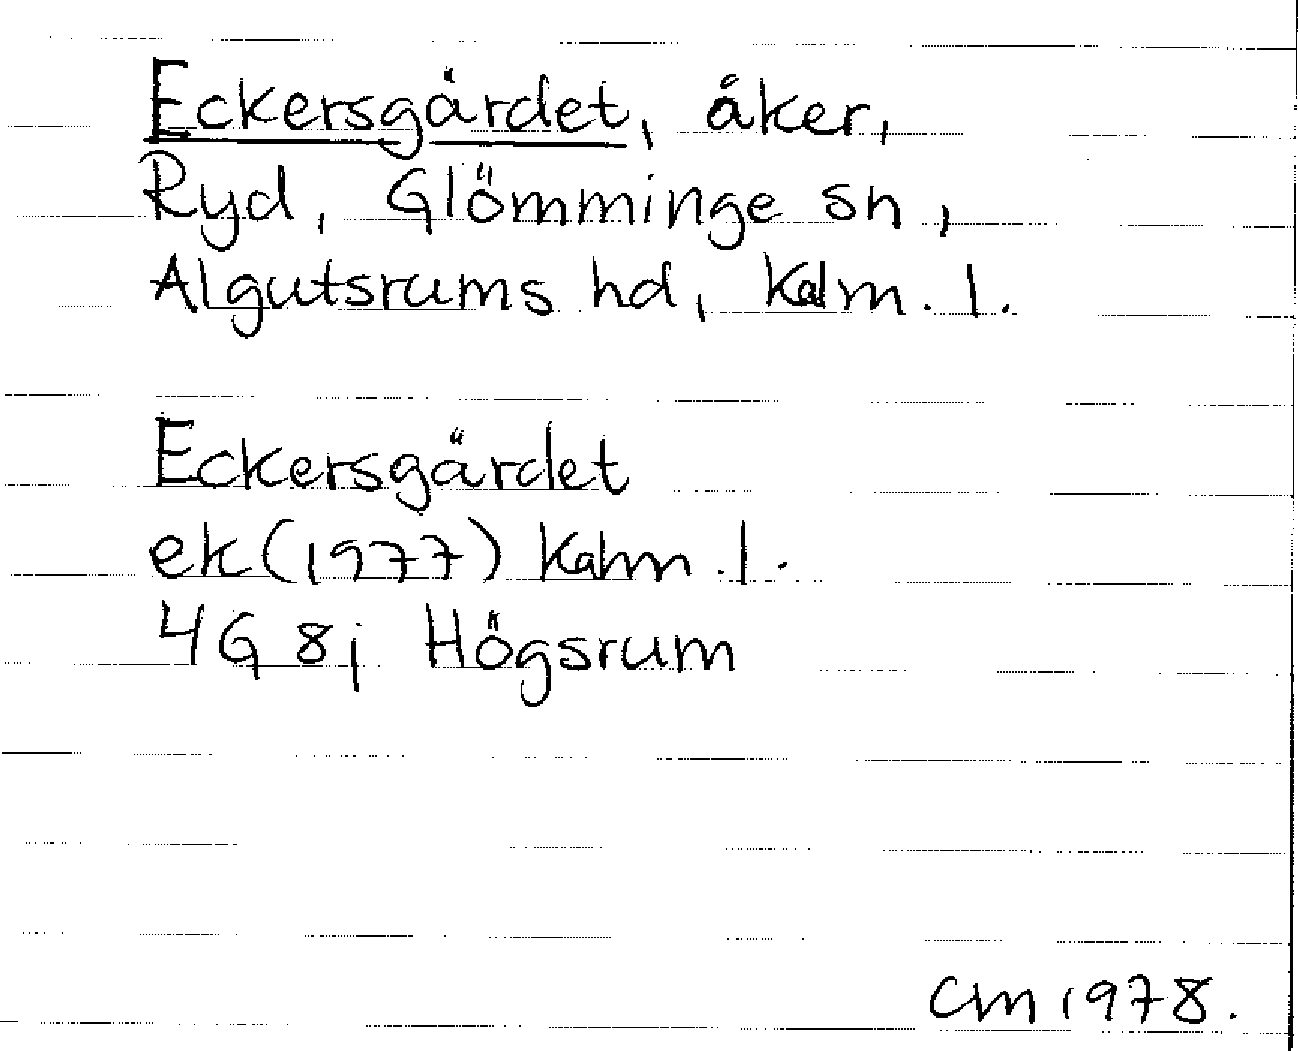 Eckersgärdet, åker,
Ryd, Glömminge sn,
Algutsrums hd, Kalm. l.
Eckersgärdet
ek (1977) Kalm. l.
4G 8j Högsrum
CM 1978.